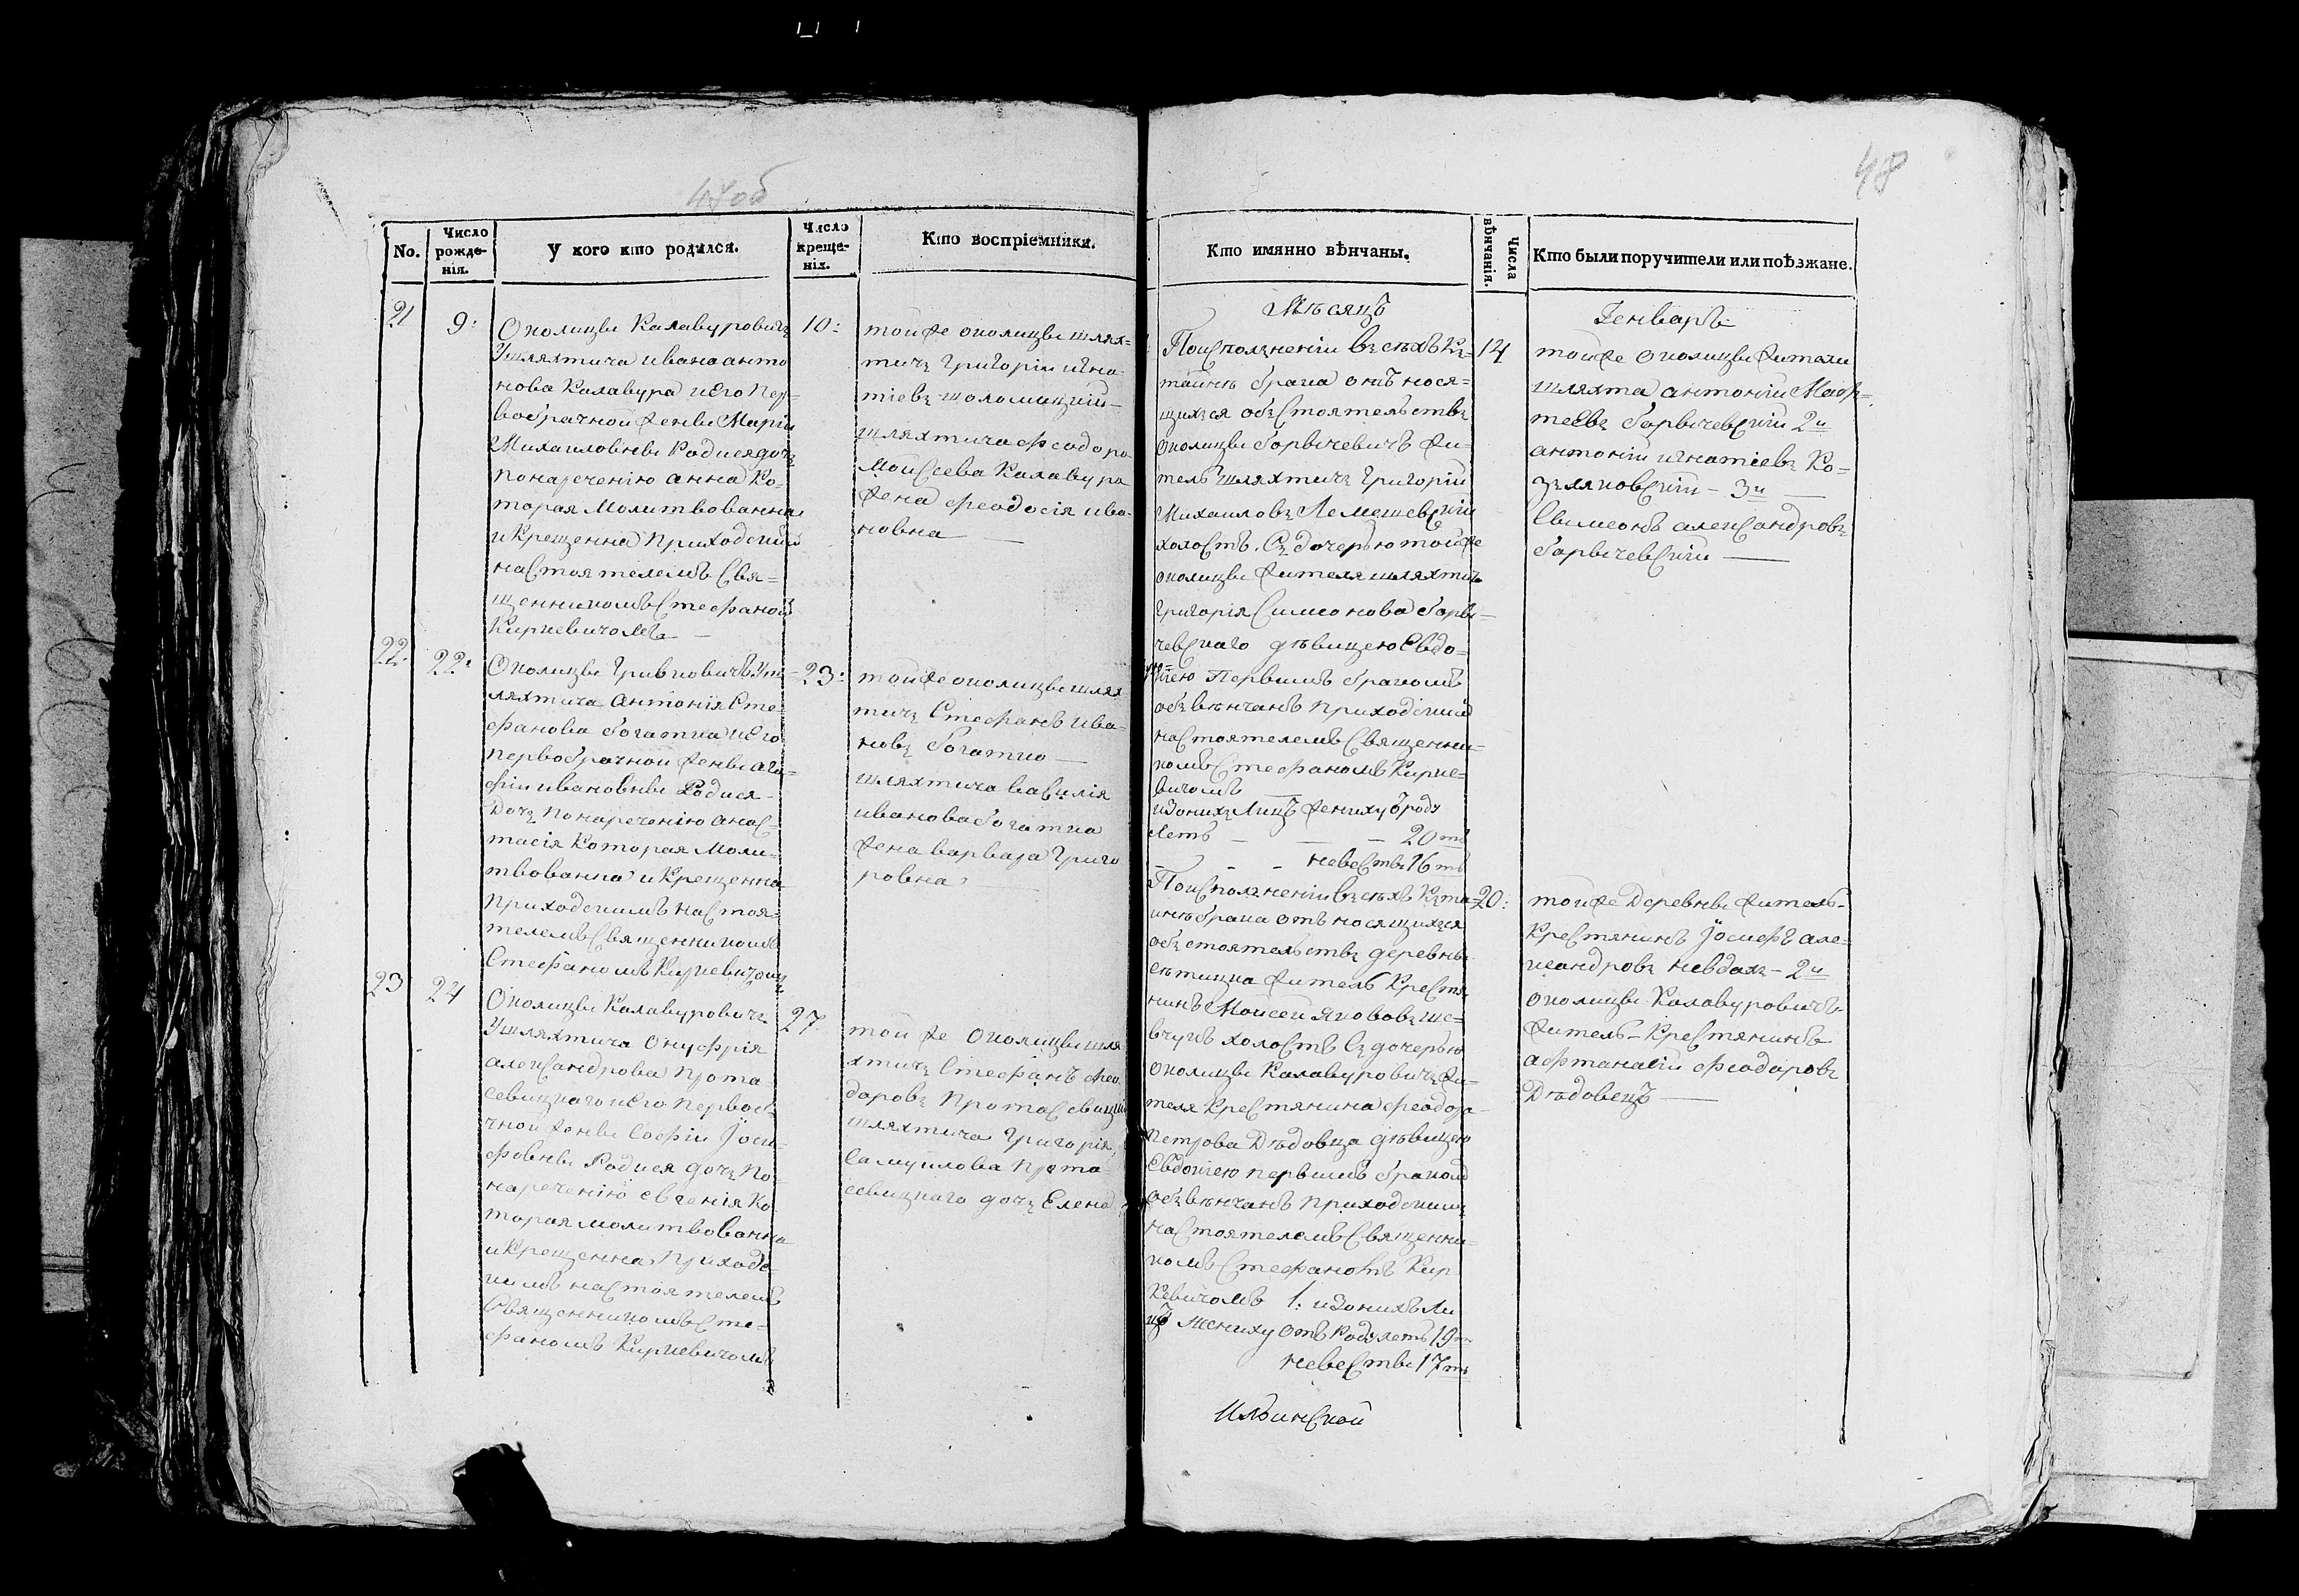 47об
No.
Число рожде-
нія.
У кого кто родился.
Число креще-
нія.
Кто воспріемники.
21
9:
Околицы Калавуровичъ
У шляхтича Ивана Анто
нова Калавура и Его Пер-
вобрачной жены Маріи
Михаиловны Родися дочъ
по наречению Анна Ко-
торая Молитвованна
и Крещенна Приходскимъ
настоятелемъ Свя=
щенникомъ Стефаномъ
Киркевичомъ
10:
той же околицы шлях=
тичъ Григорій Игна-
тіевъ Шоломицкій
шляхтича Феодора
Моисеева Калавура
жена Феодосія Ива-
новна
22
22:
Околицы Гривковичъ У ш-
ляхтича Антонія Сте-
фанова Богатка и Его
первобрачной жены Ага-
фіи Ивановны Родися
Дочъ по наречению Анас-
тасія Которая Моли-
твованна и Крещенна
Приходскимъ настоя-
телемъ Священникомъ
Стефаномъ Киркевичомъ
23:
той же околицы шлях
тичъ Стефанъ Ива-
новъ Богатко
шляхтича Василія
Иванова Богатка
жена Варвара Григо
ровна
23
24
Околицы Калавуровичъ
У шляхтича Онуфрія
Александрова Прота
севицкаго и Его первоб-
чной жены Софіи Іоси-
фовны Родися дочъ по
наречению Евгенія Ко
торая молитвованна
и Крещенна Приходс-
кимъ настоятелемъ
Священникомъ Сте-
фаномъ Киркевичомъ
27
той же Околицы шля
хтичъ Стефанъ Фео
доровъ Протасевицкій
шляхтича Григорія
Самуилова Прота-
севицкаго дочъ Елена
48
Кто имянно вѣнчаны.
Числа
вѣнчанія.
Кто были поручители или поѣзжане.
Мѣсяцъ
Генварь
По исполнении всѣхъ Къ-
таинѣ брака относя=
щихся обстоятельствъ
околицы Борычевичъ жи-
тель шляхтичъ Григорій
Михаиловъ Лемешевскій
холостъ. Съ дочерью той же
околицы жителя шляхтича
Григорія Симеонова Боры-
чевскаго дѣвицею Евдо=
кіею Первымъ бракомъ
обвѣнчанъ Приходскимъ
настоятелемъ Священни-
комъ Стефаномъ Кирке-
вичомъ
изъ оныхъ Лицъ жениху отъ роду
Летъ — — 20ть
невестѣ 16ть
14
той же околицы жители
шляхта Антоній Мар-
теевъ Борычевскій 2й
Антоній Игнатіевъ Ко-
зляковскій – 3й
Симеонъ Александровъ
Борычевскій
По исполнении всѣхъ Къ та-
инѣ брака относящихся
обстоятельствъ деревни
Сѣтицка житель Крестя
нинъ Моисей Якововъ Ше-
вчукъ холостъ Съ дочерью
околицы Калавуровичъ жи-
теля Крестянина Феодора
Петрова Дѣдовца дѣвицею
Евдокіею первымъ бракомъ
обвѣнчанъ Приходскимъ
настоятелемъ Священни-
комъ Стефаномъ Кир
кевичомъ 1: изъ оныхъ Ли
цъ Жениху отъ Роду летъ 19ть
невестѣ 17ть
20:
той же Деревни житель
Крестянинъ Іосифъ Але-
ксандровъ Невдахъ – 2й
околицы Калавуровичъ
житель Крестянинъ
Афтанасій Феодоровъ
Дѣдовецъ
Ильинской